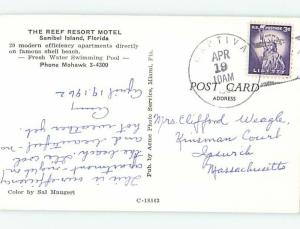 THE REEF RESORT MOTEL
Sanibel Island, Florida
20 modern efficiency apartments directly
on famous shell beach.
— Fresh Water Swimming Pool —
Phone Mohawk 3-4300
CAPTIVA
APR
19
10AM
3¢
LIBERTY
POST CARD
ADDRESS
April 19, 1962
This is our efficiency
apartment - on
the beach
beautiful - no
hot weather yet.
Mrs. Clifford Weagle,
Kinsman Court
Ipswich
Massachusetts
Pub. by Acme Photo Service, Miami, Fla.
Color by Sal Maugeri
C-18543